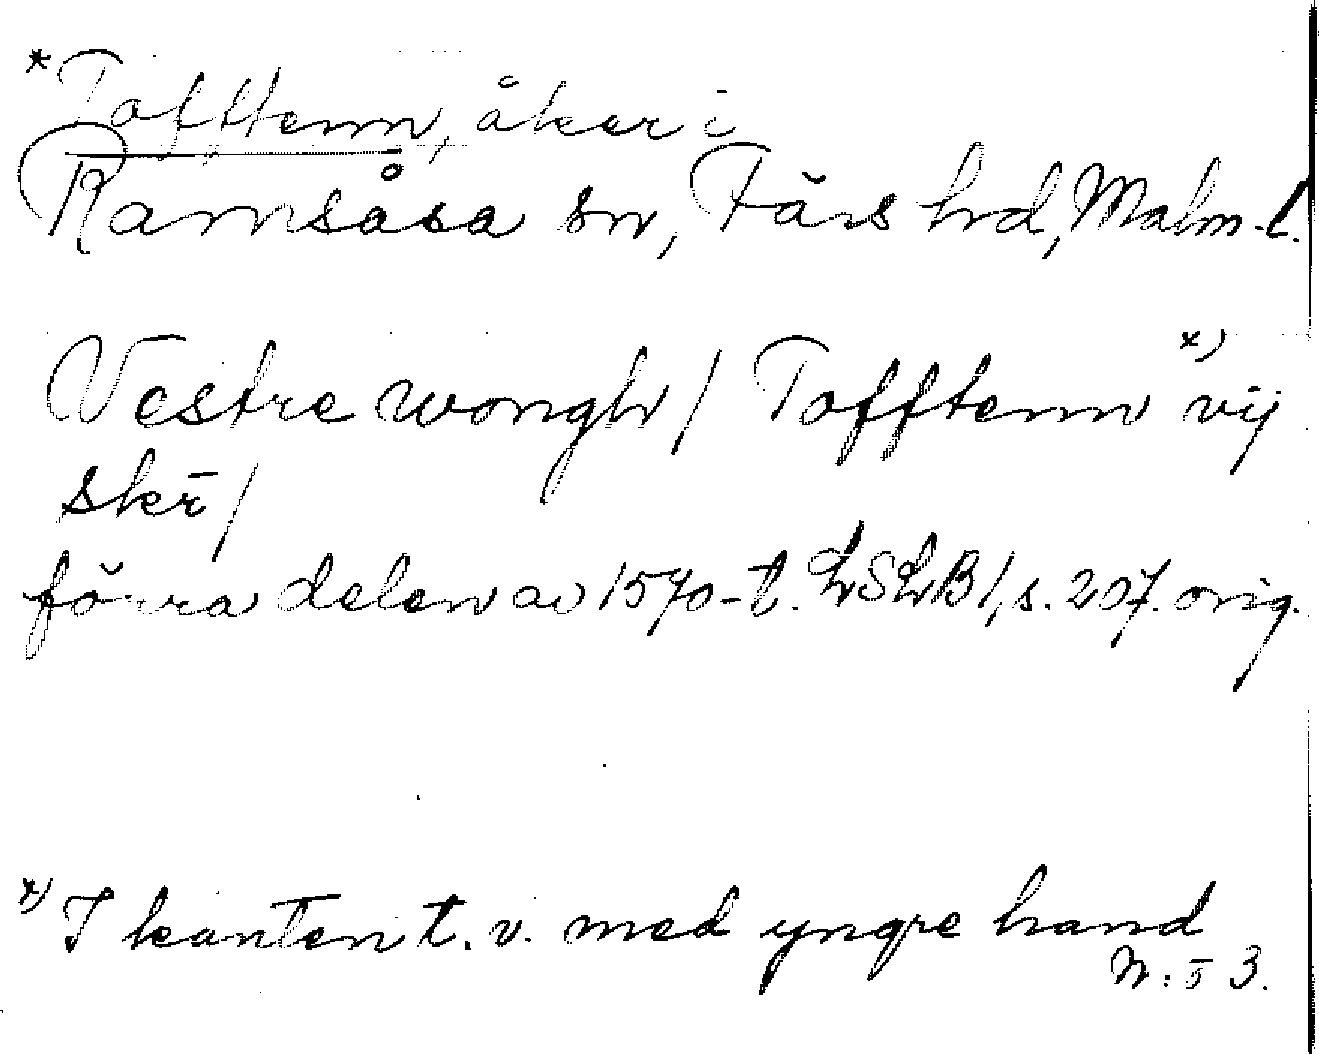 *Tofftenn, åker i
Ramsåsa sn, Färs hd, Malm. l.
Vestre wongh / Tofftenn x) vij
skē /
förra delen av 1570-t. LSLB 1, s. 207. orig.
x) I kanten t. v. med yngre hand
N:o 3.